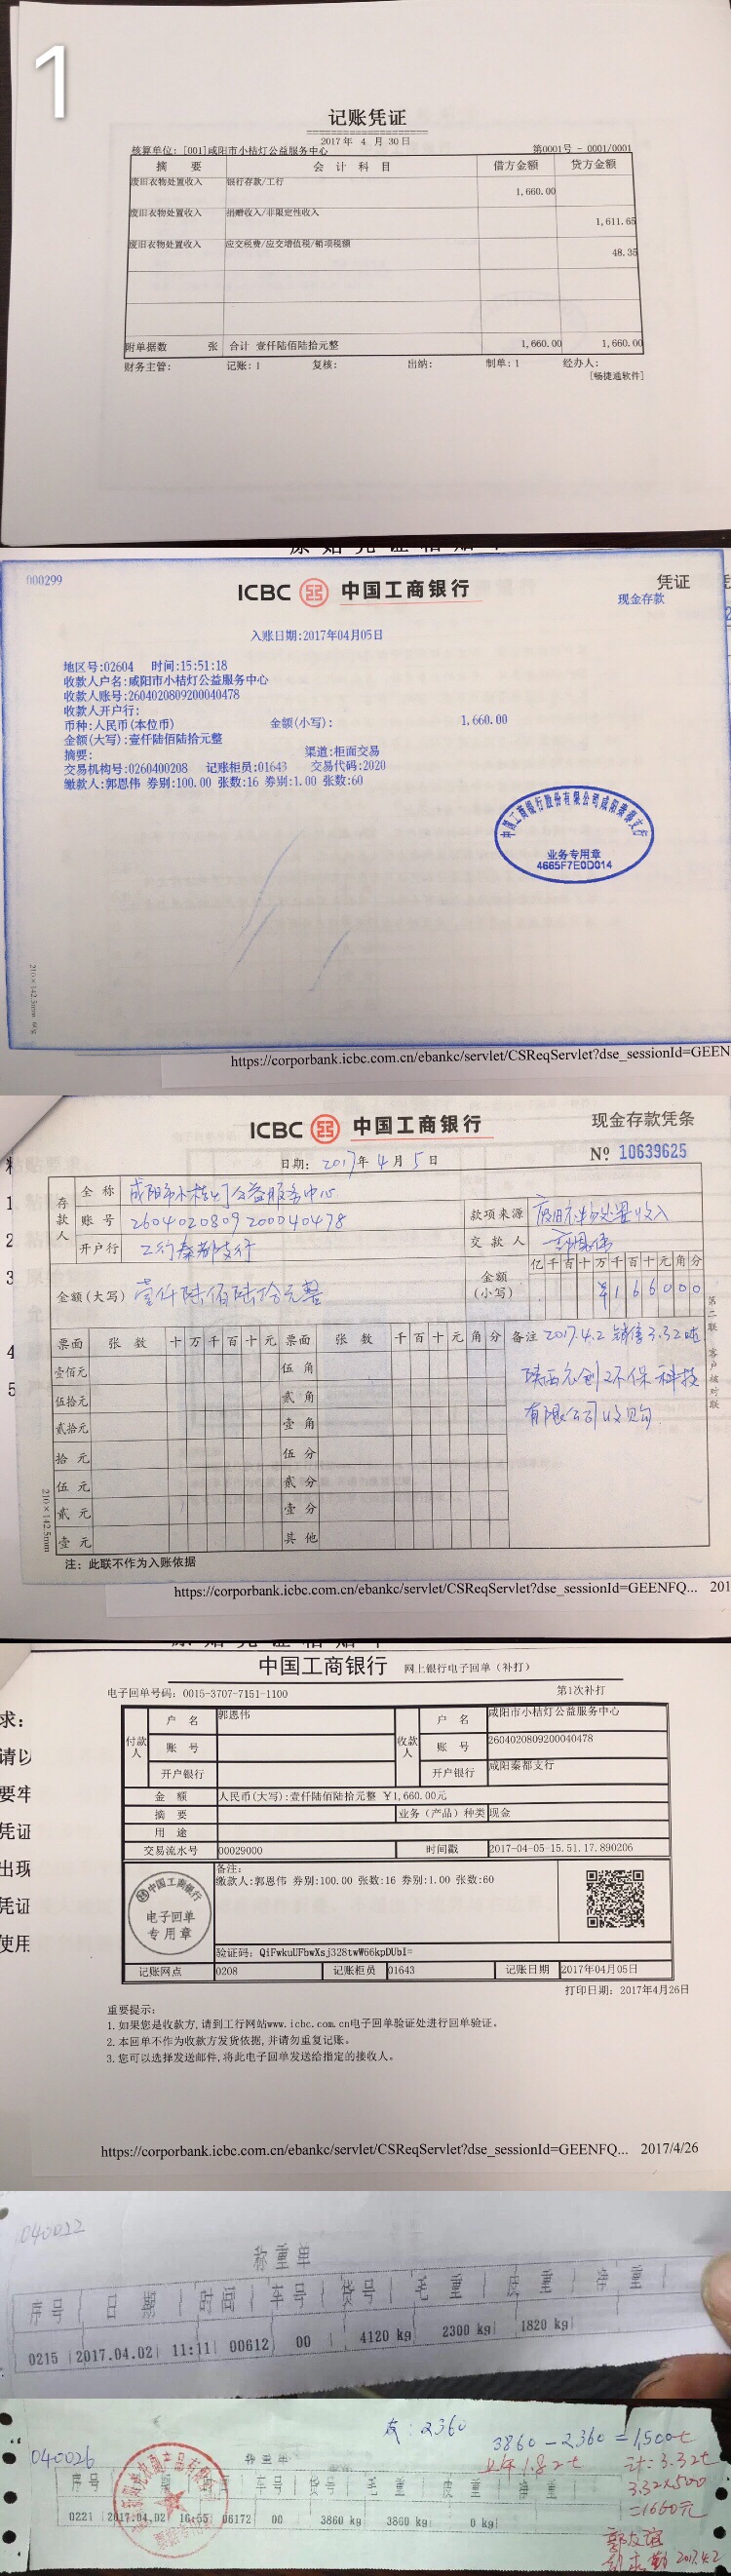 1
记账凭证
2017年 4 月 30日
核算单位: [001]咸阳市小桔灯公益服务中心 第0001号 - 0001/0001
摘 要 会 计 科 目 借方金额 贷方金额
废旧衣物处置收入 银行存款/工行 1,660.00
废旧衣物处置收入 捐赠收入/非限定性收入 1,611.65
废旧衣物处置收入 应交税费/应交增值税/销项税额 48.35
附单据数 张 合计 壹仟陆佰陆拾元整 1,660.00 1,660.00
财务主管: 记账: 1 复核: 出纳: 制单: 1 经办人:
[畅捷通软件]
000299
ICBC 中国工商银行 凭证
现金存款
入账日期:2017年04月05日
地区号:02604 时间:15:51:18
收款人户名:咸阳市小桔灯公益服务中心
收款人账号:2604020809200040478
收款人开户行:
币种:人民币(本位币) 金额(小写): 1,660.00
金额(大写):壹仟陆佰陆拾元整
摘要: 渠道:柜面交易
交易机构号:0260400208 记账柜员:01643 交易代码:2020
缴款人:郭恩伟 券别:100.00 张数:16 券别:1.00 张数:60
中国工商银行股份有限公司咸阳秦都支行
业务专用章
4665F7E0D014
210×142.5mm
https://corporbank.icbc.com.cn/ebankc/servlet/CSReqServlet?dse_sessionId=GEEN
ICBC 中国工商银行 现金存款凭条
日期: 2017年 4 月 5 日 Nº 10639625
存款人 全 称 咸阳市小桔灯公益服务中心
账 号 2604020809200040478 款项来源 废旧衣物处置收入
开户行 工行秦都支行 交 款 人 郭恩伟
金额(大写) 壹仟陆佰陆拾元整 金额(小写) 亿千百十万千百十元角分
¥166000
票面 张 数 十万千百十元 票面 张 数 千百十元角分 备注 2017.4.2 销售3.32吨
壹佰元 伍 角 陕西衣创环保科技
伍拾元 贰 角 有限公司收购
贰拾元 壹 角
拾 元 伍 分
伍 元 贰 分
贰 元 壹 分
壹 元 其 他
第二联 客户核对联
210×142.5mm
注: 此联不作为入账依据
https://corporbank.icbc.com.cn/ebankc/servlet/CSReqServlet?dse_sessionId=GEENFQ... 201
中国工商银行 网上银行电子回单(补打)
电子回单号码: 0015-3707-7151-1100 第1次补打
付款人 户 名 郭恩伟 收款人 户 名 咸阳市小桔灯公益服务中心
账 号 账 号 2604020809200040478
开户银行 开户银行 咸阳秦都支行
金 额 人民币(大写):壹仟陆佰陆拾元整 ¥1,660.00元
摘 要 业务(产品)种类 现金
用 途
交易流水号 00029000 时间戳 2017-04-05-15.51.17.890206
备注:
缴款人:郭恩伟 券别:100.00 张数:16 券别:1.00 张数:60
中国工商银行
电子回单
专用章
验证码: QiFwkuUFbwXsj328twW66kpDUbI=
记账网点 0208 记账柜员 01643 记账日期 2017年04月05日
打印日期: 2017年4月26日
重要提示:
1.如果您是收款方,请到工行网站www.icbc.com.cn电子回单验证处进行回单验证。
2.本回单不作为收款方发货依据,并请勿重复记账。
3.您可以选择发送邮件,将此电子回单发送给指定的接收人。
求:
请以
要牢
凭证
出现
凭证
使用
https://corporbank.icbc.com.cn/ebankc/servlet/CSReqServlet?dse_sessionId=GEENFQ... 2017/4/26
040022
称重单
序号 日 期 时间 车号 货号 毛 重 皮 重 净 重
0215 2017.04.02 11:11 00612 00 4120 kg 2300 kg 1820 kg
皮: 2360
3860-2360=1,500t
040026 称重单 上午1.82t 计: 3.32t
序号 期 车号 货号 毛 重 皮 重 净 重 3.32×500
0221 2017.04.02 16:55 06172 00 3860 kg 3860 kg 0 kg =1660元
2017.4.2